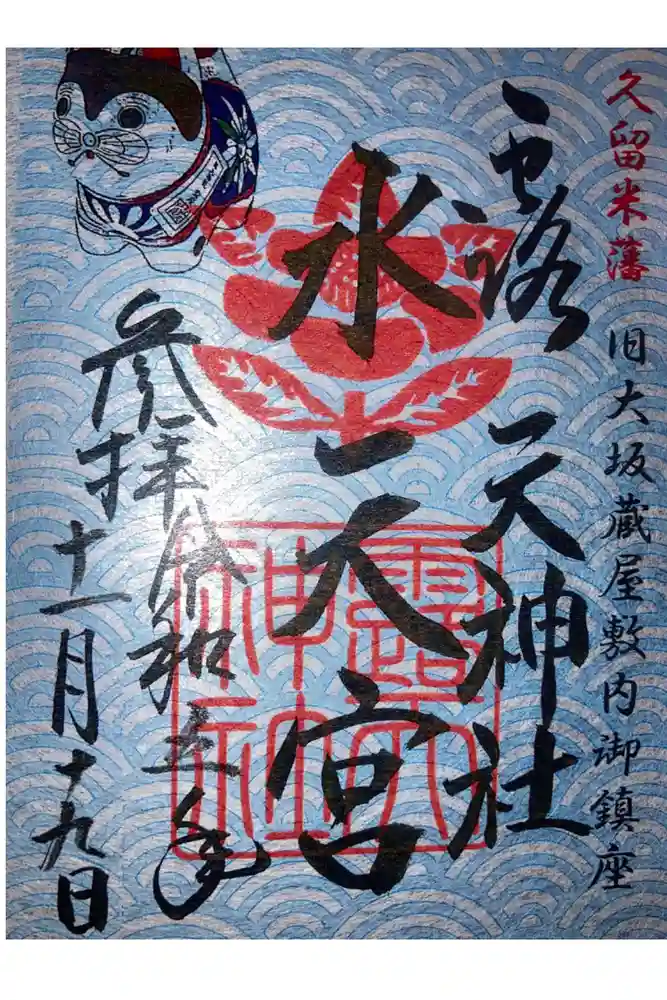 久留米藩 旧大坂蔵屋敷内御鎮座
露天神社
水天宮
露天神社
参拝 令和五年
十一月十九日